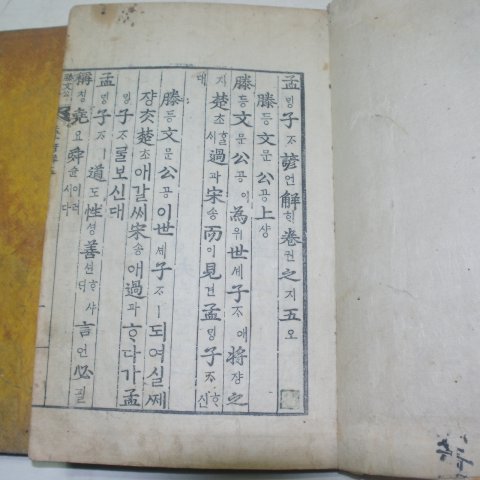 孟ᄆᆡᆼ子ᄌᆞ諺언解ᄒᆡ卷권之지五오
滕등文문公공上샹
滕등文문公공이爲위世셰子ᄌᆞ애將쟝之
지楚초ᄒᆞᆯ시過과宋송而이見견孟ᄆᆡᆼ子ᄌᆞᄒᆞ신
대
滕등文문公공이世셰子ᄌᆞㅣ되여실쩨
쟝ᄎᆞᆺ楚초애갈씨宋송애過과ᄒᆞ다가孟
ᄆᆡᆼ子ᄌᆞᄅᆞᆯ보신대
孟ᄆᆡᆼ子ᄌᆞㅣ道도性셩善션ᄒᆞ샤ᄃᆡ言언必필
稱칭堯요舜슌이러시다